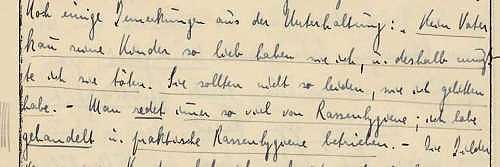 Noch einige Bemerkungen aus der Unterhaltung: „Kein Vater
kann seine Kinder so lieb haben wie ich, u. deshalb muß-
te ich sie töten. Sie sollten nicht so leiden, wie ich gelitten
habe. – Man redet immer so viel von Rassenhygiene; ich habe
gehandelt u. praktische Rassenhygiene betrieben. – Die Bilder